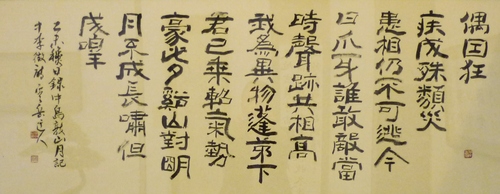 偶因狂
疾成殊類災
患相仍不可逃今
日爪牙誰敢敵當
時聲跡共相高
我為異物蓬茅下
君已乘軺氣勢
豪此夕谿山對明
月不成長嘯但
成嘷
日錄中島敦山月記
中李徴詩